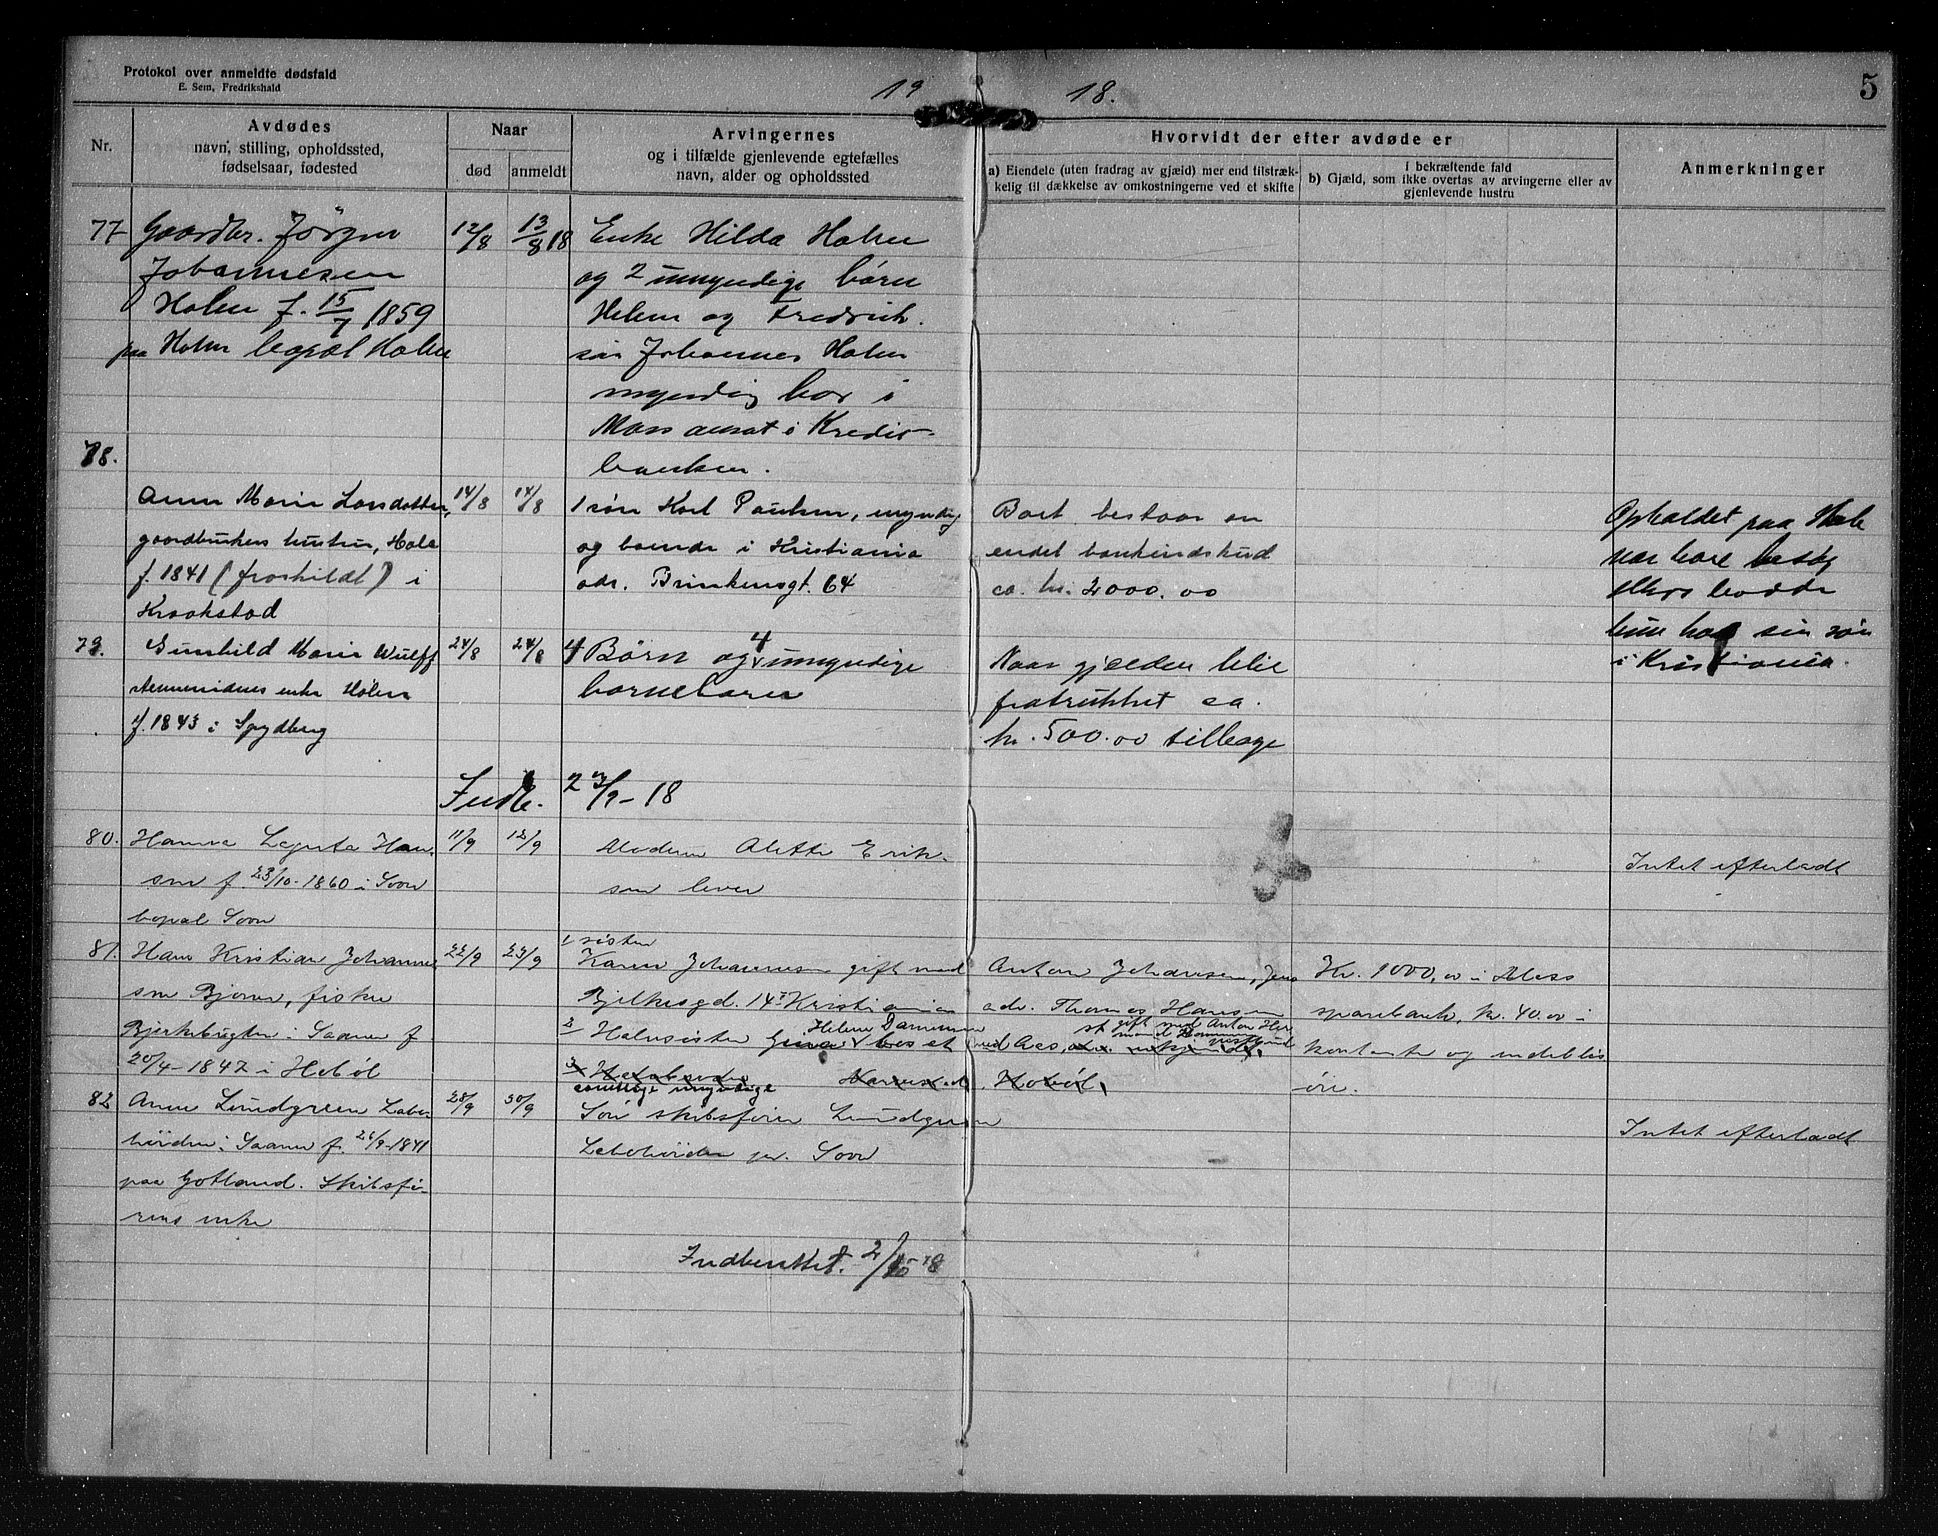 Protokol over anmeldte dødsfald
E. Sem, Fredrikshald
19 18.
5
Nr.
Avdødes
navn, stilling, opholdssted,
fødselsaar, fødested
Naar
død
anmeldt
Arvingernes
og i tilfælde gjenlevende egtefælles
navn, alder og opholdssted
Hvorvidt der efter avdøde er
a) Eiendele (uten fradrag av gjæld) mer end tilstræk-
kelig til dækkelse av omkostningerne ved et skifte
i bekræftende fald
b) Gjæld, som ikke overtas av arvingerne eller av
gjenlevende hustru
Anmerkninger
77
Gaardbr. Jörgen
Johannesen
Holen f. 15/7 1859
paa Holen bopæl Holen
12/8
13/8 18
Enke Hilda Holen
og 2 umyndige börn
Helene og Fredrik.
sön Johannes Holen
myndig bor i
Moss ansat i Kredit-
banken.
78.
Anne Marie Larsdatter,
gaardbrukers hustru, Hole
f. 1841 (fraskildt) i
Kraakstad
14/8
14/8
1 sön Karl Paulsen, myndig
og boende i Kristiania
adr. Brinkensgt. 64
Boet bestaar av
endel bankindskud
ca. kr. 2000.00
Opholdet paa Hole
var bare besög
ellers bodde
hun hos sin sön
i Kristiania.
79.
Gunhild Marie Wulff
enke Hölen
f. 1843 i Spydberg
24/8
24/8
4 Börn og 4 umyndige
barnebarn
Naar gjælden blir
fratrukket ca.
kr. 500.00 tilbage
Indb. 2/9-18
80.
Hanna Han-
sen f. 23/10-1860 i Soon
bopæl Soon
11/9
12/9
Moderen Alette Erik-
sen lever
Intet efterladt
81.
Hans Kristian Johannes
sen Bjørnen, fisker
Bjerkebugten i Saaner f
20/4-1847 i Hobøl
22/9
23/9
1 sister
Karen Johannesen gift med
Anton Johansen, Jens
Bjelkesgd. 14 Kristiania
adr. Thomas Hansen
2 Halvsister Helene
gift med Anton Her
Aas,
Hobøl,
Kr. 1000,00 i Moss
sparebank, kr. 40.00 i
kontanter og indebls
öre.
82
Anne Lundgreen Labo
höiden i Saaner f. 26/9-1841
paa Gotland. Skibsfö-
rers enke
28/9
30/9
samtlige myndige
Sön skibsförer Lundgreen
Labohöiden pr. Soon
Intet efterladt
Indberettet. 2/10 18